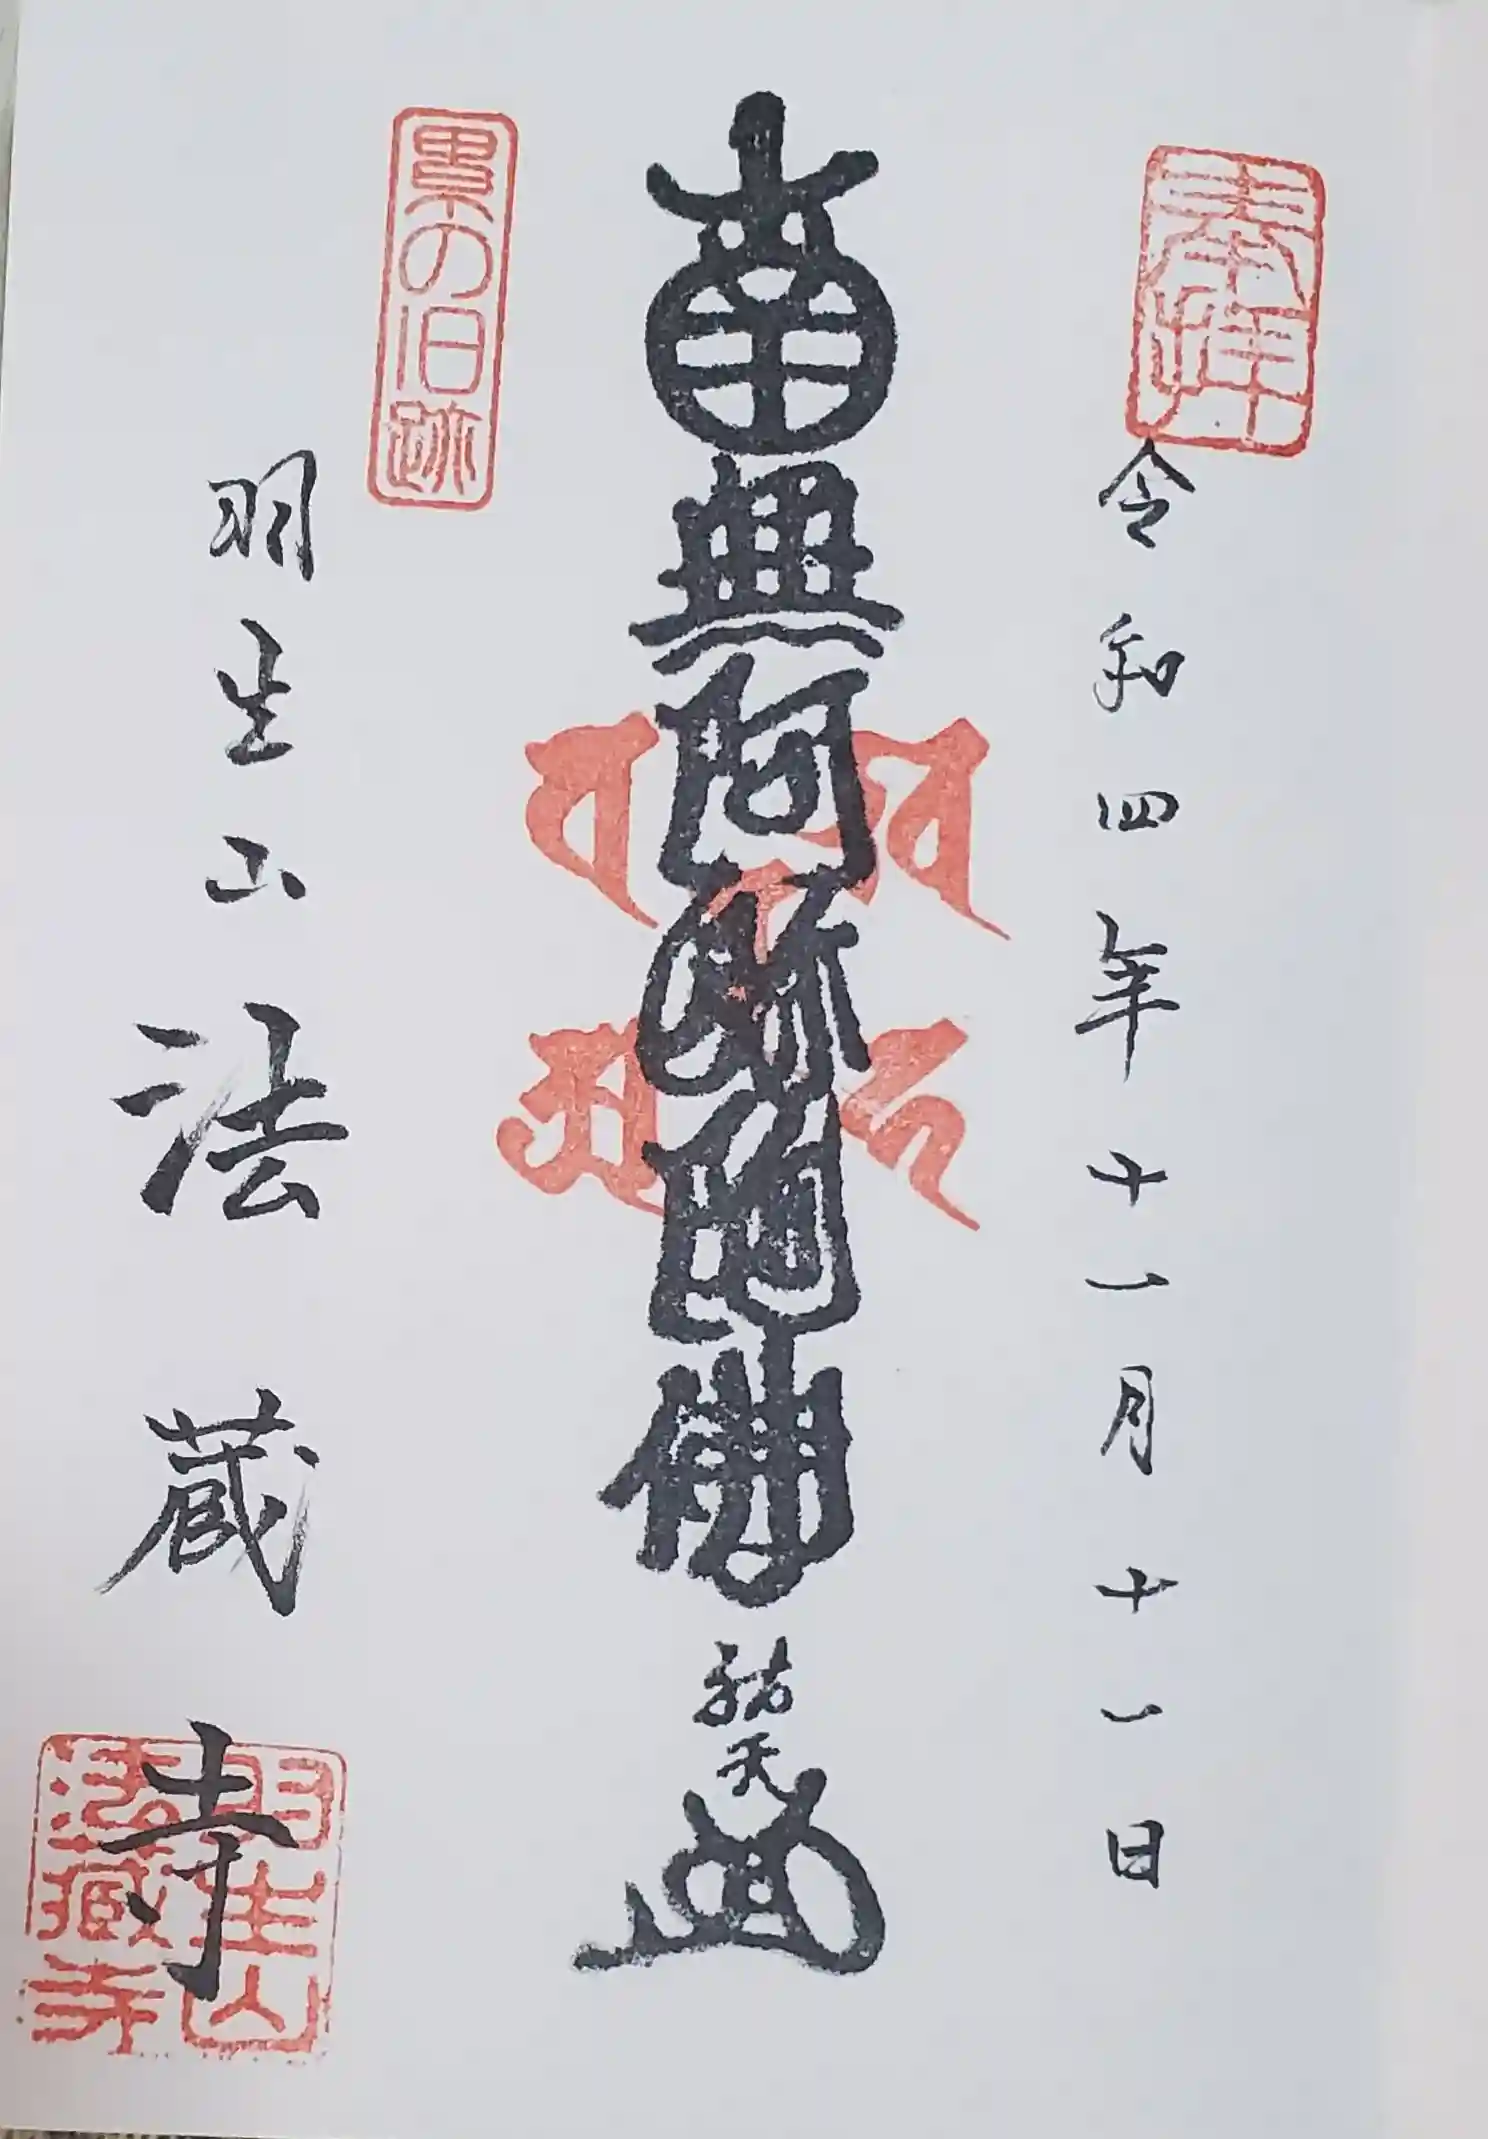 奉拝
令和四年十一月十一日
南無阿弥陀佛
祐天
累の旧跡
羽生山法蔵寺
羽生山
法藏寺